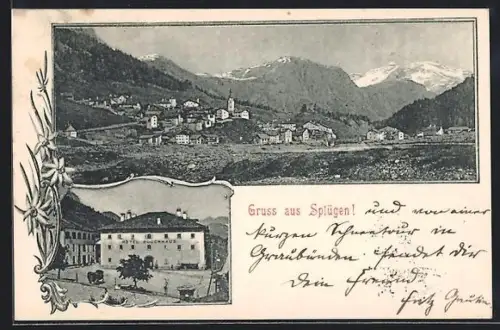 HOTEL BODENHAUS
Gruss aus Splügen! und von einer
kurzen Schneetour in
Graubünden sendet dir
Dein Freund
Fritz